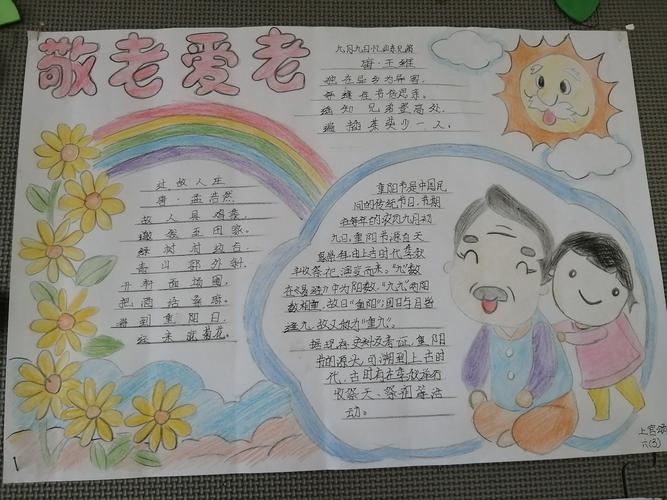 敬老爱老
九月九日忆山东兄弟
唐·王维
独在异乡为异客，
每逢佳节倍思亲。
遥知兄弟登高处，
遍插茱萸少一人。
过故人庄
唐·孟浩然
故人具鸡黍，
邀我至田家。
绿树村边合，
青山郭外斜。
开轩面场圃，
把酒话桑麻。
待到重阳日，
还来就菊花。
重阳节是中国民
间的传统节日，节期
在每年的农历九月初
九日。重阳节源自天
象崇拜，由上古时代季秋
丰收祭祀演变而来。“九”数
在《易经》中为阳数，“九九”两阳
数相重，故曰“重阳”；因日与月皆
逢九，故又称为“重九”。
据现存史料及考证，重阳
节的源头，可溯到上古时
代，古时有在季秋举行
收祭天、祭祖等活
动。
上官颂
六(3)